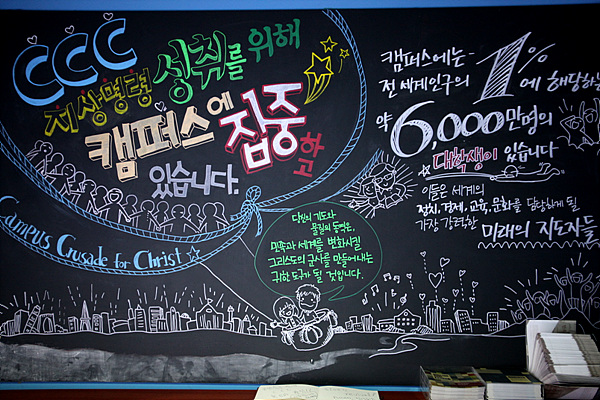 CCC
지상명령 성취를 위해
캠퍼스에 집중하고
있습니다.
Campus Crusade for Christ
당신의 기도와
물질의 동역은,
민족과 세계를 변화시킬
그리스도의 군사를 만들어내는
귀한 도구가 될 것입니다.
캠퍼스에는-
전 세계인구의 1%에 해당하는
약 6,000만명의
대학생이 있습니다
이들은 세계의
정치, 경제, 교육, 문화를 담당하게 될
가장 강력한 미래의 지도자들